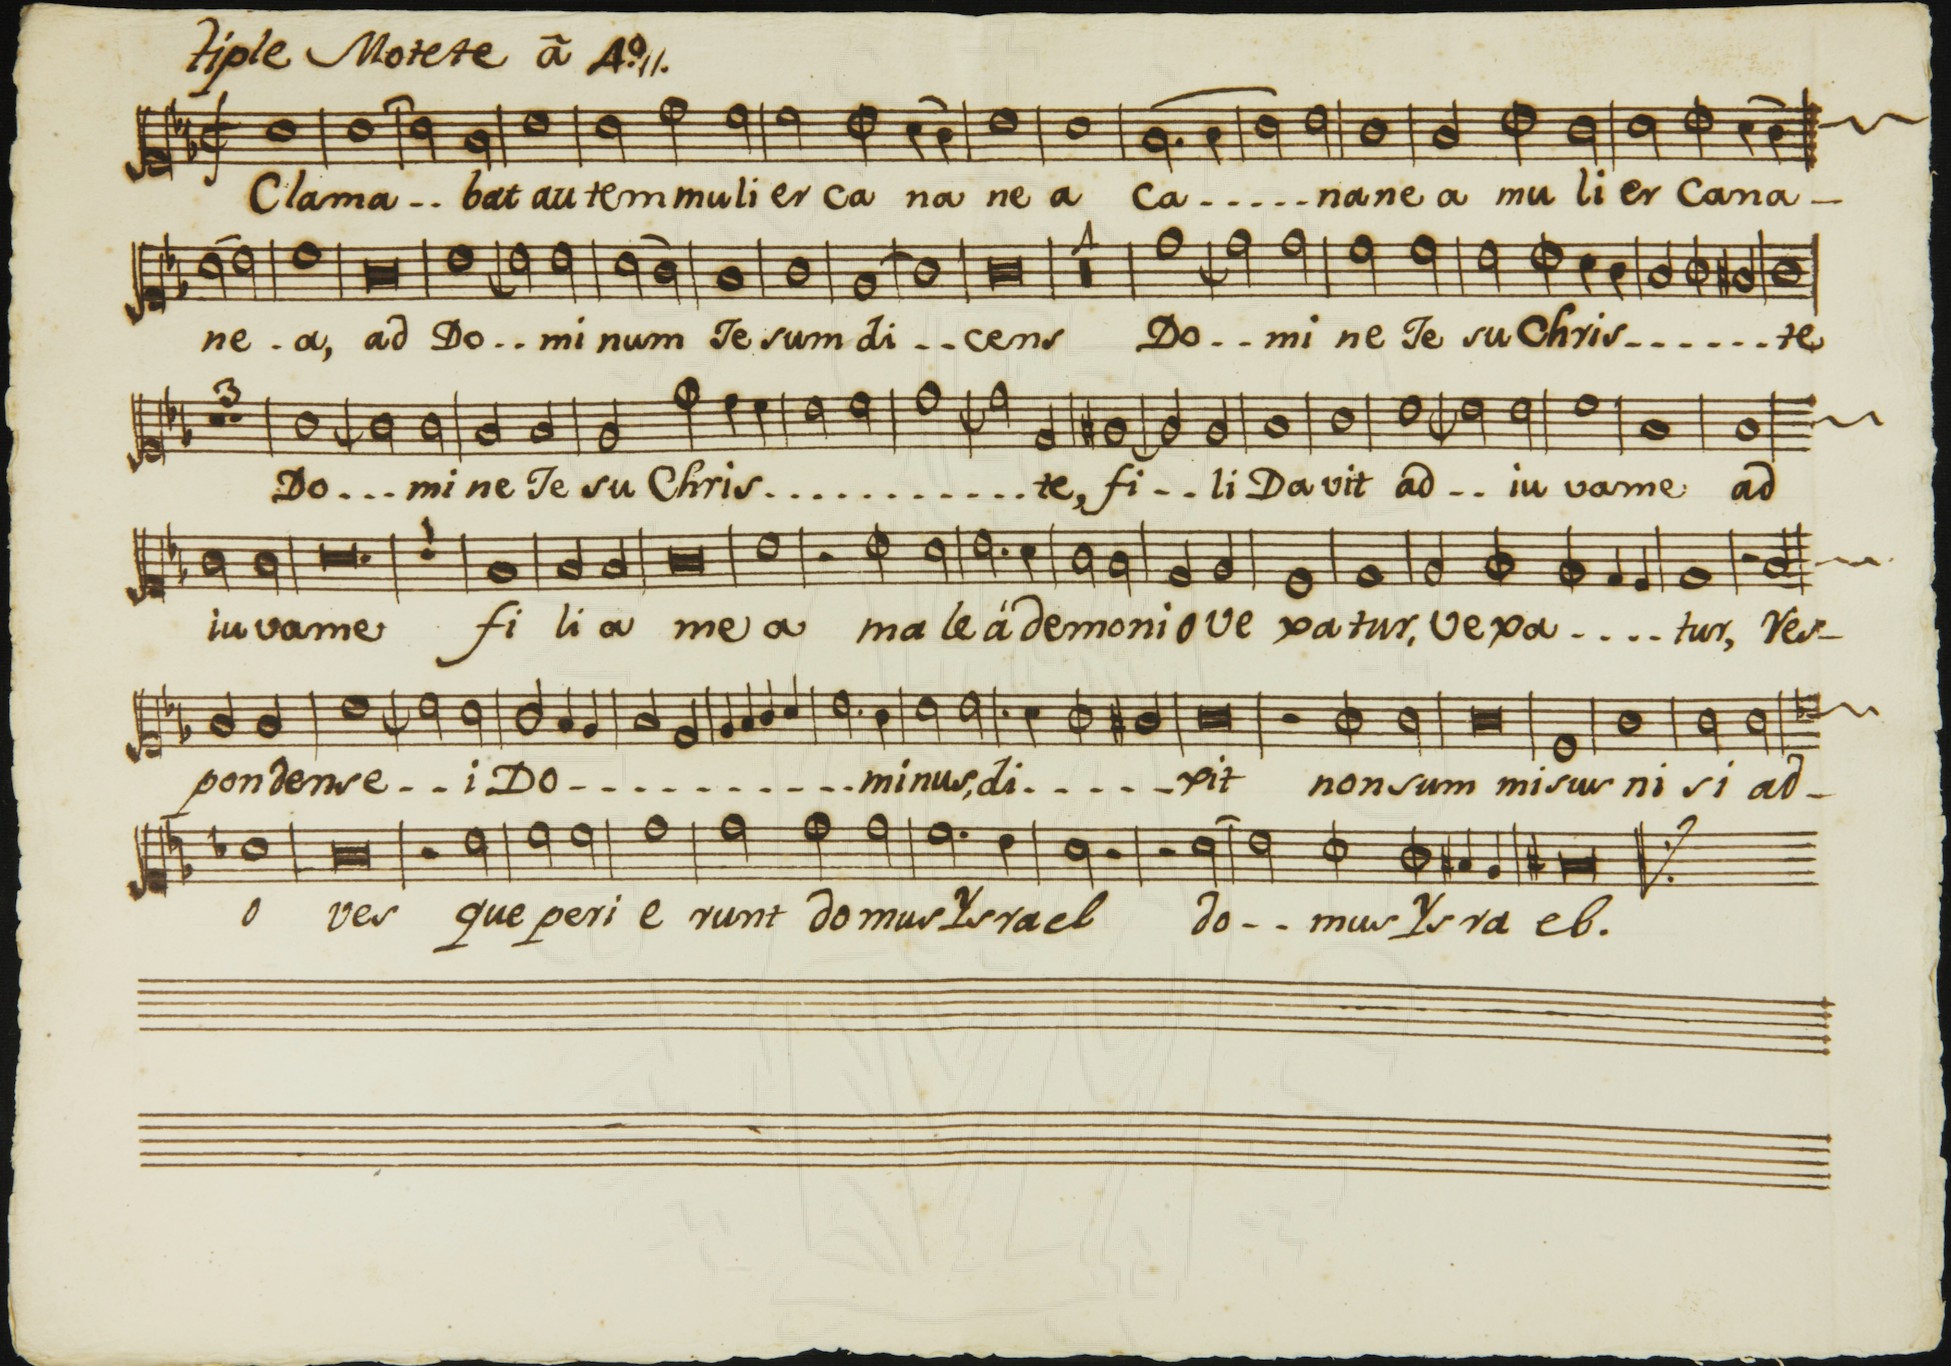 tiple Motete ã 4º//.
Clama - - bat autem mulier ca na ne a ca - - - - - nane a mu li er Cana -
1
ne - a, ad Do - - mi num Je sum di - - cens Do - - mi ne Je su Chris - - - - - - te
3
Do - - - mi ne Je su Chris - - - - - - - - - - - - te, fi - - li Da vit ad - - iu vame ad
iu vame fi li a me a ma le á demoni o ve xa tur, ve xa - - - - tur, Res -
pondens e - - i Do - - - - - - - - - - - minus, di - - - - - xit non sum misus ni si ad -
o ves que peri e runt domus Ysrael do - - mus Ys ra el.